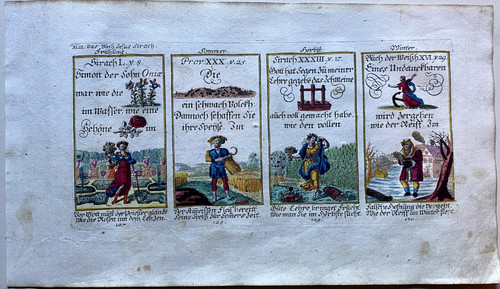 XLII. Das Buch Jesus Sirach.
Frühling.
Sirach L. v. 8.
Simon der Sohn Oniæ
war wie die
im Wasser, wie eine
Schöne im
Vor Gott muß der Priester
wie die Rosen in dem Lentzen.
167.
Sommer
Prov XXX. v. 25.
Die
ein schwach Volck
Dannoch schaffen Sie
ihr Speise. Im
Seine Speiß zur Sommers Zeit.
Herbst
Sirach XXXIII. v. 17.
Gott hat Segen zu meiner
Lehre gegeben das Ich meine
auch voll gemacht habe.
wie den vollen
Gute Lehre, bringet Frucht.
Wie man Sie im Herbste sucht.
169.
Winter.
Buch der Weißh XVI. v. 29.
Eines Undanckbaren
wird Zergehen
wie der Reiff. Im
Falsche Hofnung die vergeht,
Wie der Reiff im Winter
170.